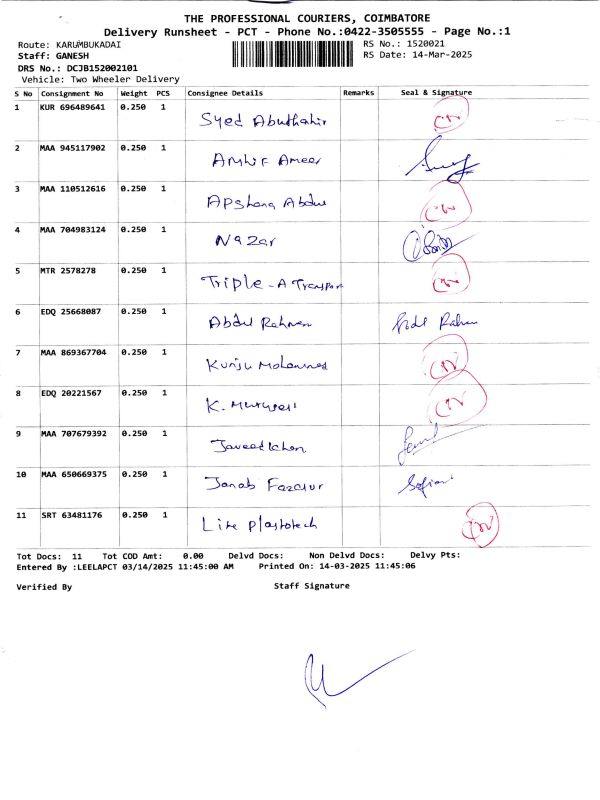 THE PROFESSIONAL COURIERS, COIMBATORE
Delivery Runsheet - PCT - Phone No.:0422-3505555 - Page No.:1
Route: KARUMBUKADAI RS No.: 1520021
Staff: GANESH RS Date: 14-Mar-2025
DRS No.: DCJB152002101
Vehicle: Two Wheeler Delivery
S No Consignment No Weight PCS Consignee Details Remarks Seal & Signature
1 KUR 696489641 0.250 1 Syed Abuthahir CN
2 MAA 945117902 0.250 1 Ameer
3 MAA 110512616 0.250 1 Apshana Abdul CN
4 MAA 704983124 0.250 1 Nazar
5 MTR 2578278 0.250 1 Triple-A Transport CN
6 EDQ 25668087 0.250 1 Abdul Rahman Abdul Rahman
7 MAA 869367704 0.250 1 Kunju Mohammed CN
8 EDQ 20221567 0.250 1 K. CN
9 MAA 707679392 0.250 1 Javeed Khan
10 MAA 650669375 0.250 1 Janab
11 SRT 63481176 0.250 1 Line Plastotech CN
Tot Docs: 11 Tot COD Amt: 0.00 Delvd Docs: Non Delvd Docs: Delvy Pts:
Entered By :LEELAPCT 03/14/2025 11:45:00 AM Printed On: 14-03-2025 11:45:06
Verified By Staff Signature